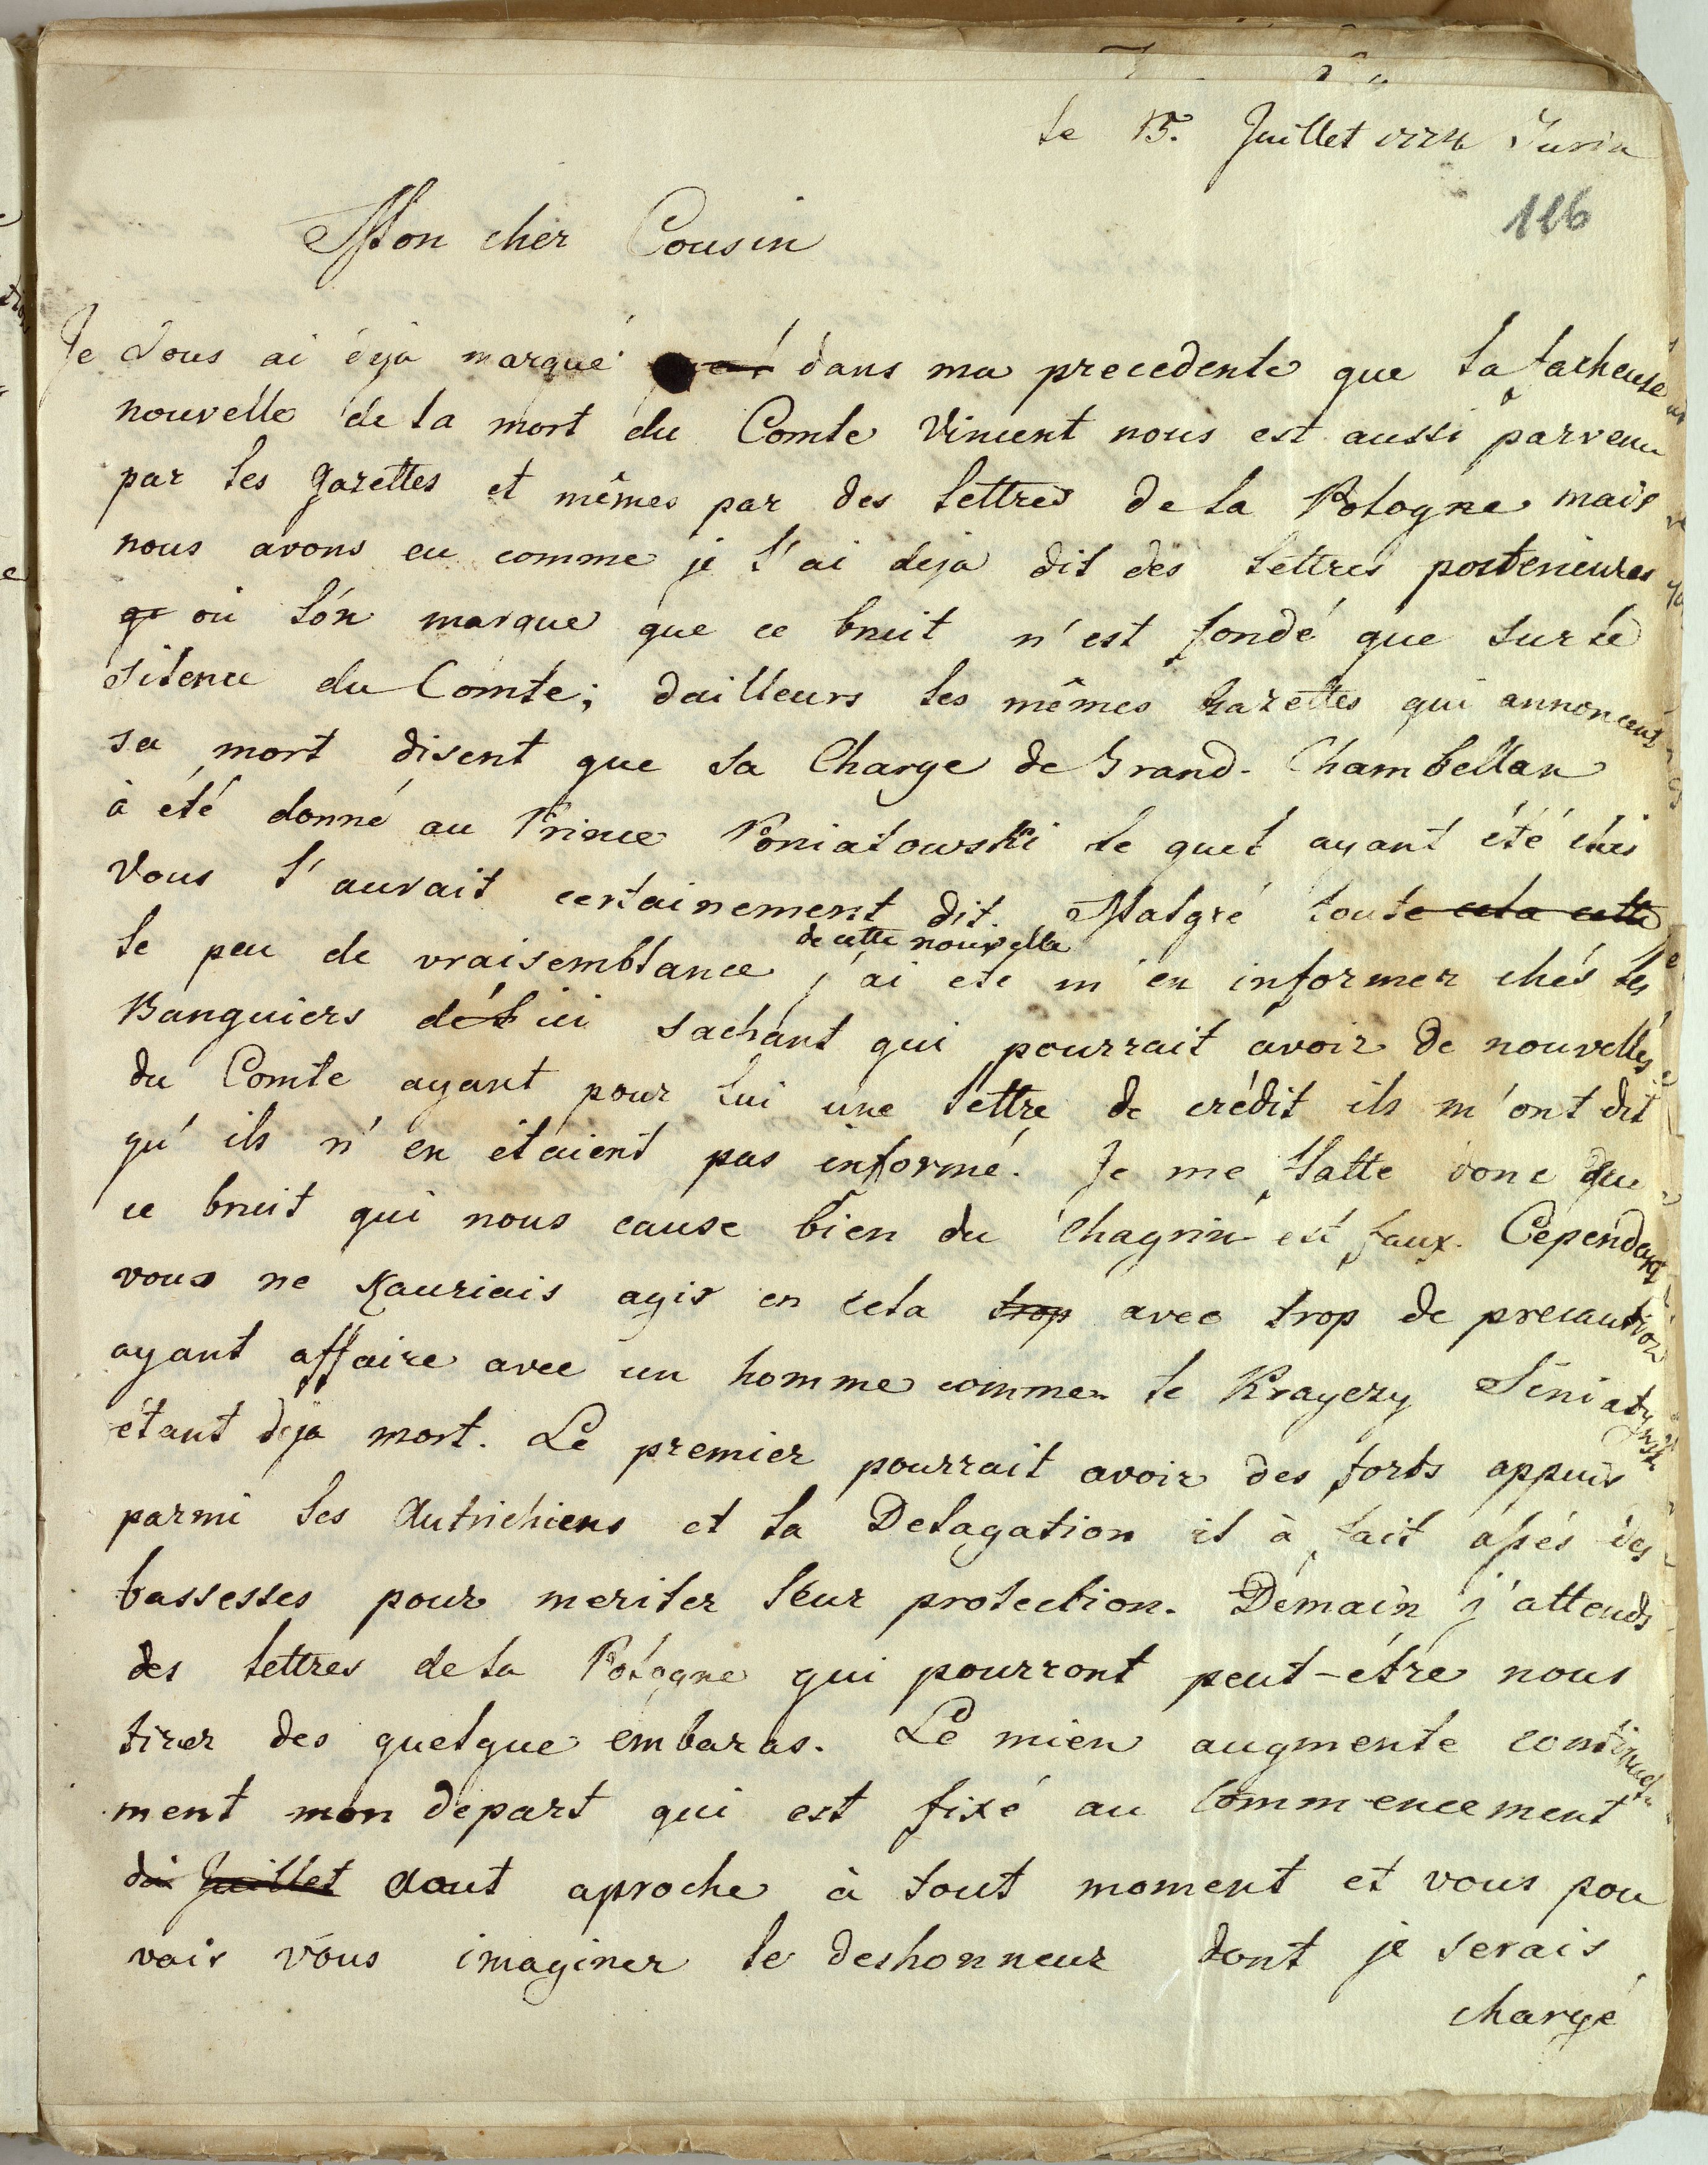 le 15. Juillet 1774 Turin
116
Mon cher Cousin
Je vous ai deja marqué dans ma precedente que la facheuse
nouvelle de la mort du Comte Vincent nous est aussi parvenu
par les Gazettes et mêmes par des lettres de la Pologne mais
nous avons eu comme je l'ai deja dit des lettres posterieures
où l'on marque que ce bruit n'est fondé que sur le
silence du Comte; dailleurs les mêmes Gazettes qui annoncent
sa mort disent que sa Charge de Grand-Chambellan
à été donné au Prince Poniatowski le quel ayant été chés
vous l'aurait certainement dit. Malgré toute cela cette
de cette nouvelle
le peu de vraisemblance j'ai eté m'en informer chés les
Banquiers d'ici sachant qui pourrait avoir de nouvelles
du Comte ayant pour lui une lettre de crédit ils m'ont dit
qu'ils n'en étaient pas informé. Je me flatte donc que
ce bruit qui nous cause bien du chagrin est faux. Cependant
vous ne sauriais agir en cela trop avec trop de precaution
ayant affaire avec un homme comme le Krayczy Siniatynski
étant deja mort. Le premier pourrait avoir des forts appuis
parmi les Autrichiens et la Delagation il à fait assés des
bassesses pour meriter leur protection. Demain j'attends
des lettres de la Pologne qui pourront peut-étre nous
tirer des quelque embaras. Le mien augmente continuel-
ment mon depart qui est fixé au commencement
du Juillet aout aproche à tout moment et vous pou
vais vous imaginer le deshonneur dont je serais
chargé